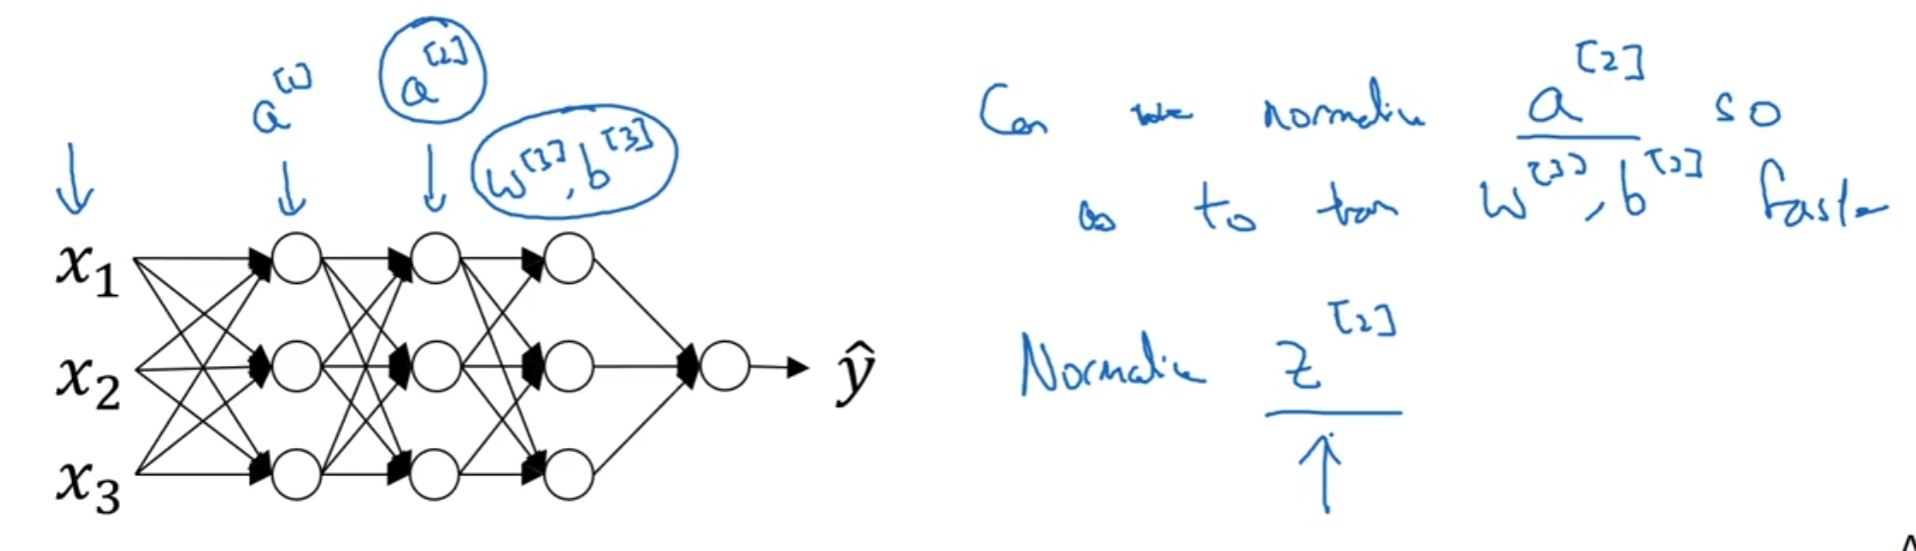 a[1]
a[2]
w[3], b[3]
x1
x2
x3
ŷ
Can we normalize a[2] so
as to train w[3], b[3] faster
Normalize z[2]